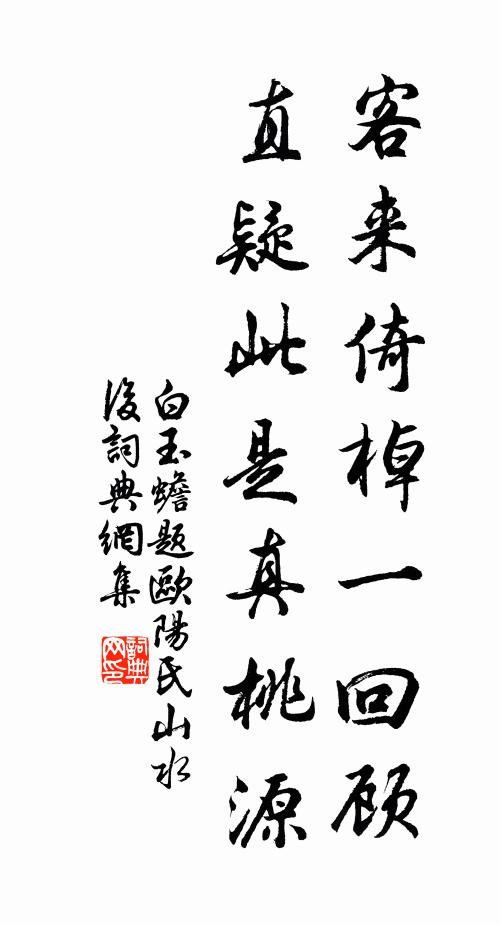 客来倚棹一回顾
直疑此是真桃源
白玉蟾题歐陽氏山水
後詞典網集
詞典
网印